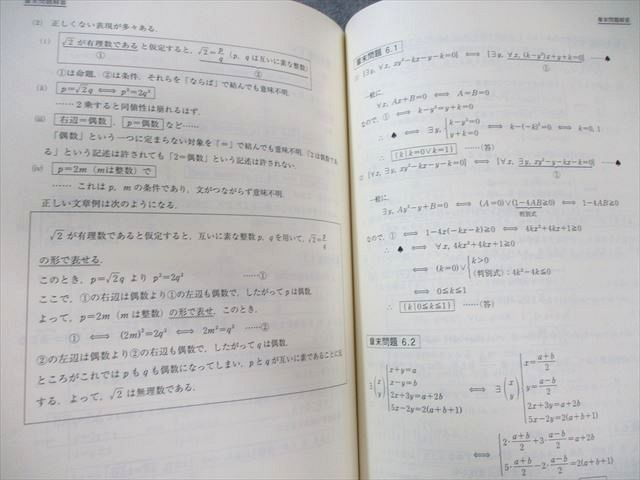 章末問題解答
(2) 正しくない表現が多々ある.
(i) √2 が有理数であると仮定すると, √2=p/q (p, q は互いに素な整数)
① ②
①は命題, ②は条件. それらを「ならば」で結んでも意味不明.
(ii) p=√2q ⟺ p²=2q²
…… 2乗すると同値性は崩れるはず.
(iii) 右辺=偶数. p=偶数 など……
「偶数」という一つに定まらない対象を「=」で結んでも意味不明.「2は偶数であ
る」という記述は許されても「2=偶数」という記述は許されない.
(iv) p=2m (mは整数) で
…… これは p, m の条件であり, 文がつながらず意味不明.
正しい文章例は次のようになる.
√2 が有理数であると仮定すると, 互いに素な整数 p, q を用いて, √2=p/q
の形で表せる.
このとき, p=√2q より p²=2q² ……①
ここで, ①の右辺は偶数より①の左辺も偶数で, したがって p は偶数.
よって, p=2m (m は整数) の形で表せ. このとき,
① ⟺ (2m)²=2q² ⟺ 2m²=q² ……②
②の左辺は偶数より②の右辺も偶数で, したがって q は偶数.
ところがこれでは p も q も偶数になってしまい, p と q が互いに素であることに反
する. よって, √2 は無理数である.
章末問題解答
章末問題 6.1
[∃y, ∀x, xy²-kx-y-k=0] ⟺ [∃y, ∀x, (k-y²)x+y+k=0] ……♠
①
一般に,
∀x, Ax+B=0 ⟺ A=B=0
なので, ① ⟺ k-y²=y+k=0
∴ ♠ ⟺ ∃y, { k-y²=0 y+k=0 ⟺ k-(-k)²=0 ⟺ k=0, 1
∴ {k|k=0∨k=1} ……(答)
[∀x, ∃y, xy²-kx-y-k=0] ⟺ [∀x, ∃y, xy²-y-kx-k=0] ……♠
①
一般に,
∃y, Ay²-y+B=0 ⟺ (A=0)∨(1-4AB≧0) ⟺ 1-4AB≧0
判別式
なので, ① ⟺ 1-4x(-kx-k)≧0 ⟺ 4kx²+4kx+1≧0
∴ ♠ ⟺ ∀x, 4kx²+4kx+1≧0
⟺ (k=0)∨{ k>0 (判別式):4k²-4k≦0
⟺ 0≦k≦1
∴ {k|0≦k≦1} ……(答)
章末問題 6.2
∃(x y) { x+y=a x-y=b 2x+3y=a+2b 5x-2y=2(a+b+1) ⟺ ∃(x y) { x=(a+b)/2 y=(a-b)/2 2x+3y=a+2b 5x-2y=2(a+b+1)
⟺ { 2・(a+b)/2+3・(a-b)/2=a+2b
5・(a+b)/2-2・(a-b)/2=2(a+b+1)